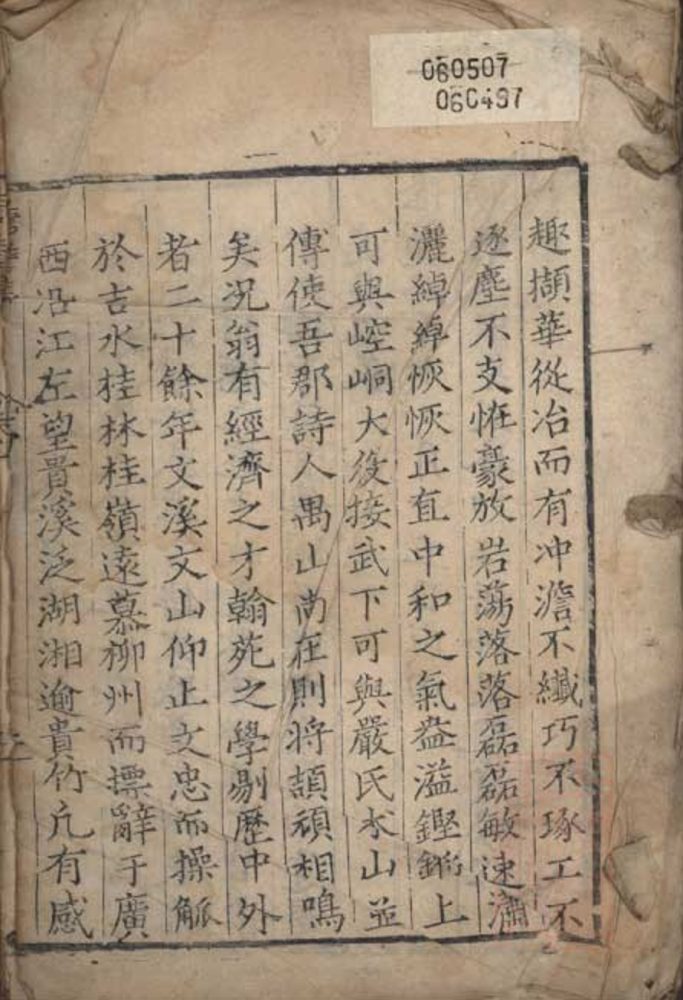 060507
060497
趣擷華從冶而有冲澹不纖巧不琢工不
逐塵不支怪豪放岩蕩落落磊磊敏速瀟
灑綽綽恢恢正直中和之氣盎溢鏗鏘上
可與崆峒大後接武下可與嚴氏氷山並
傳使吾郡詩人禺山尚在則將頡頏相鳴
矣况翁有經濟之才翰苑之學剔歷中外
者二十餘年文溪文山仰止文忠而操觚
於吉水桂林桂嶺遠慕柳州而摽辭于廣
西沿江左望貴溪泛湖湘逾貴竹凢有感